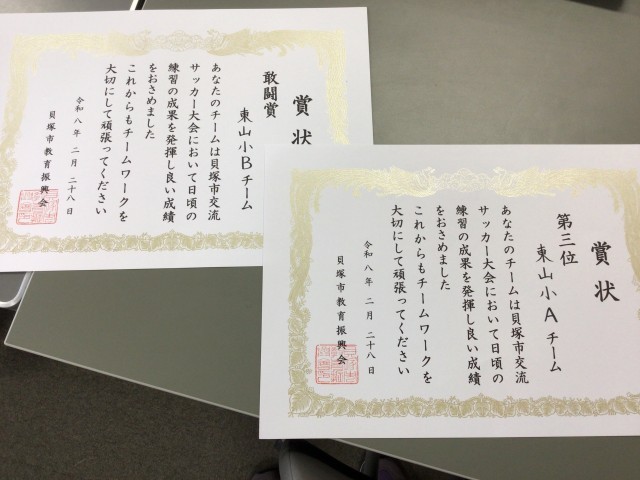 賞状
敢闘賞
東山小Bチーム
あなたのチームは貝塚市交流
サッカー大会において日頃の
練習の成果を発揮し良い成績
をおさめました
これからもチームワークを
大切にして頑張ってください
令和八年二月二十八日
貝塚市教育振興会
賞状
第三位
東山小Aチーム
あなたのチームは貝塚市交流
サッカー大会において日頃の
練習の成果を発揮し良い成績
をおさめました
これからもチームワークを
大切にして頑張ってください
令和八年二月二十八日
貝塚市教育振興会